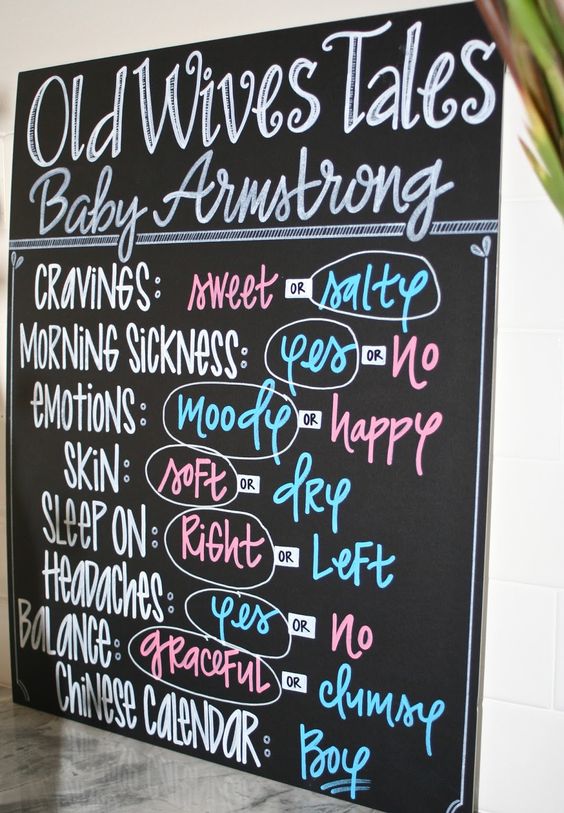 Old Wives Tales
Baby Armstrong
CRAVINGS: sweet OR salty
MORNING SICKNESS: yes OR no
EMOTIONS: moody OR happy
SKIN: SOFT OR dry
SLEEP ON: RIGHT OR LEFT
HEADACHES: yes OR no
BALANCE: GRACEFUL OR clumsy
CHINESE CALENDAR: BOY